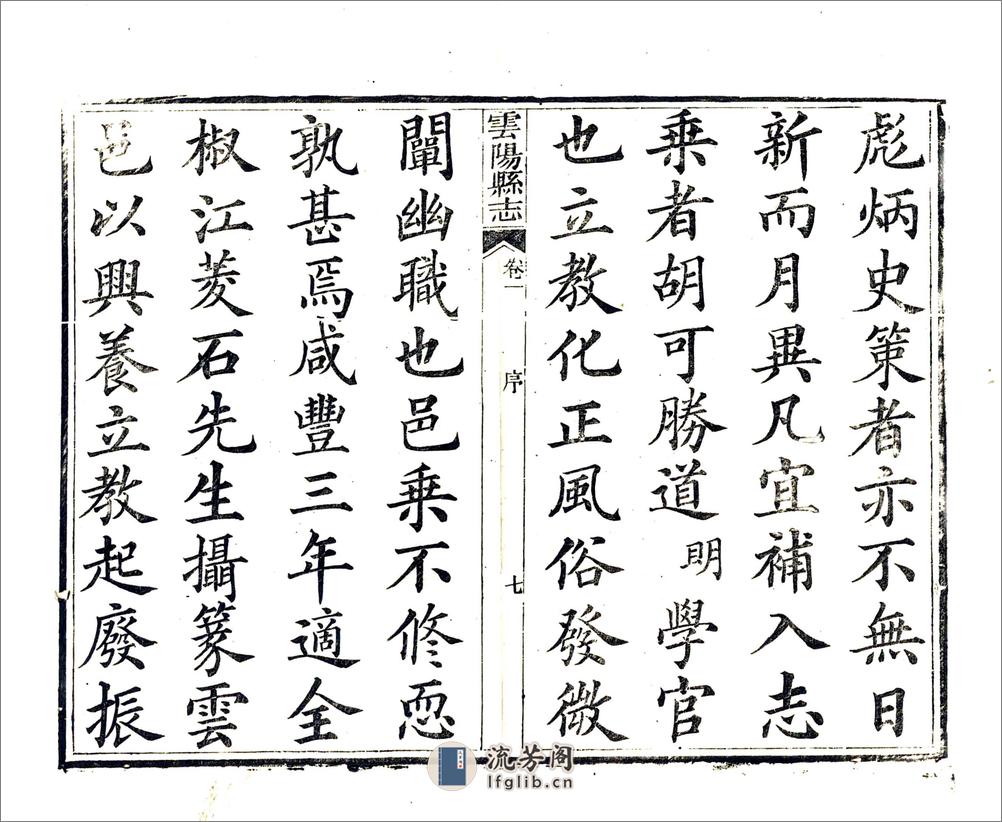 彪炳史策者亦不無日
新而月異凡宜補入志
乘者胡可勝道明學官
也立教化正風俗發微
雲陽縣志 卷一 序 七
闡幽職也邑乘不修恧
孰甚焉咸豐三年適全
椒江菱石先生攝篆雲
邑以興養立教起廢振
流芳阁
lfglib.cn